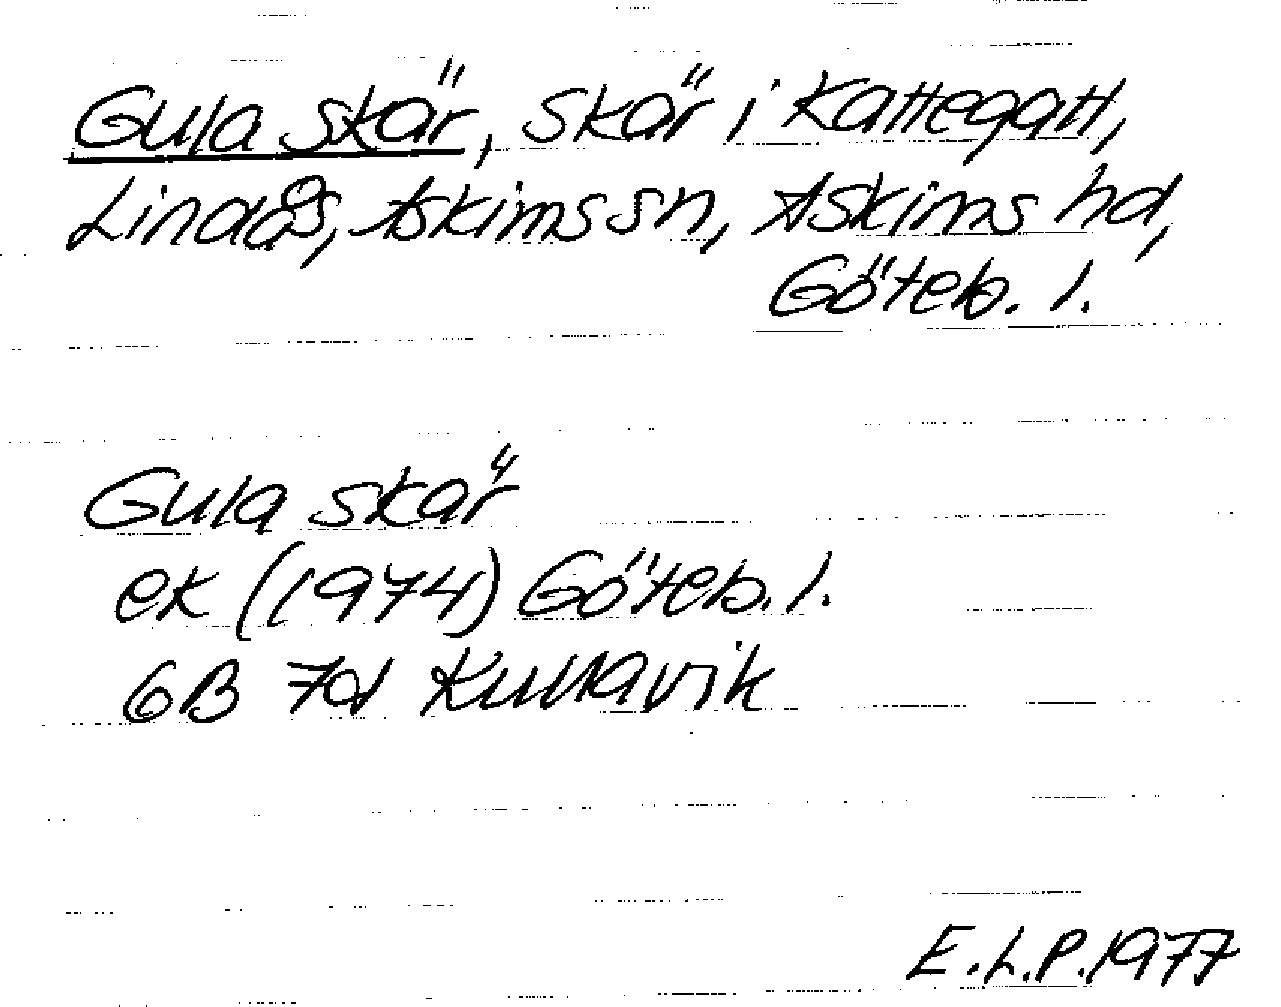 Gula skär, skär i Kattegatt,
Lindås, Askims sn, Askims hd,
Göteb. l.
Gula skär
ek (1974) Göteb. l.
6B 7d Kullavik
E.L.P. 1977